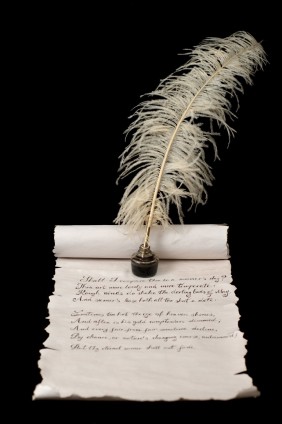 Shall I compare thee to a summer's day?
Thou art more lovely and more temperate.
Rough winds do shake the darling buds of May
And summer's lease hath all too short a date.
Sometimes too hot the eye of heaven shines,
And often is his gold complexion dimmed,
And every fair from fair sometime declines,
By chance, or nature's changing course, untrimmed:
But thy eternal summer shall not fade.